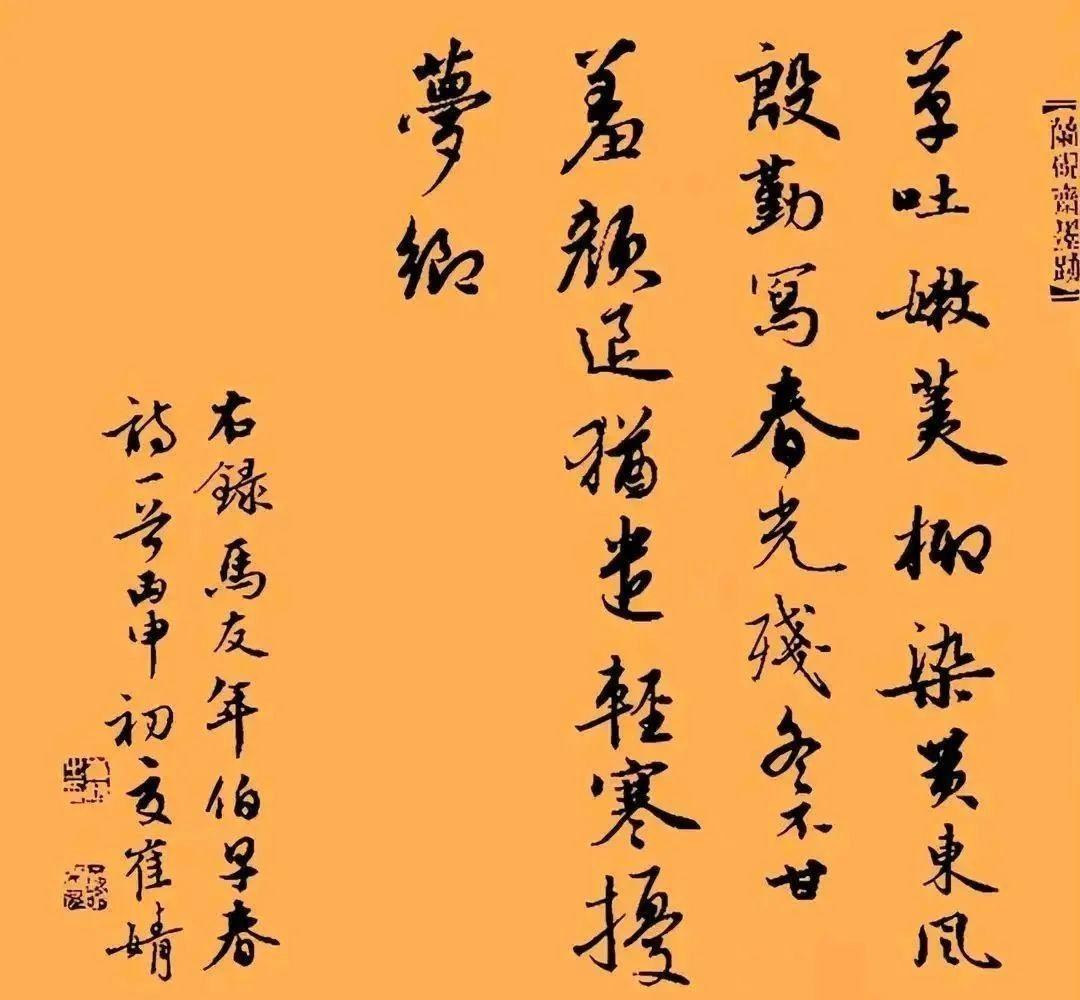 草吐嫩荑柳染黄東風
殷勤寫春光殘冬不甘
羞顔退猶遣輕寒擾
夢鄉
右録馬友年伯早春
詩一首丙申初夏崔婧
齋墨跡